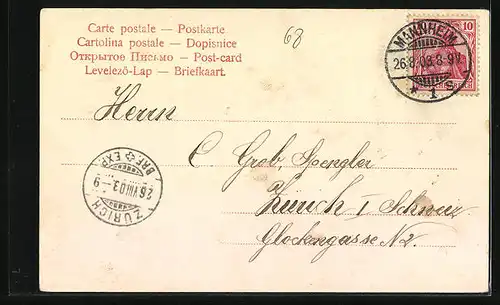 Carte postale — Postkarte
Cartolina postale — Dopisnice
Открытое Письмо — Post-card
Levelező-Lap — Briefkaart.
68
10
MANNHEIM
26.8.03.8-9V.
* 1 s
Herrn
C. Grob, Spengler
Zürich I Schweiz
Glockengasse N2.
BRF EXP.
26.VIII.03.-9
ZÜRICH